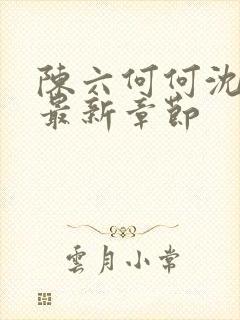 陳六何何沈
最新章節
雲月小常